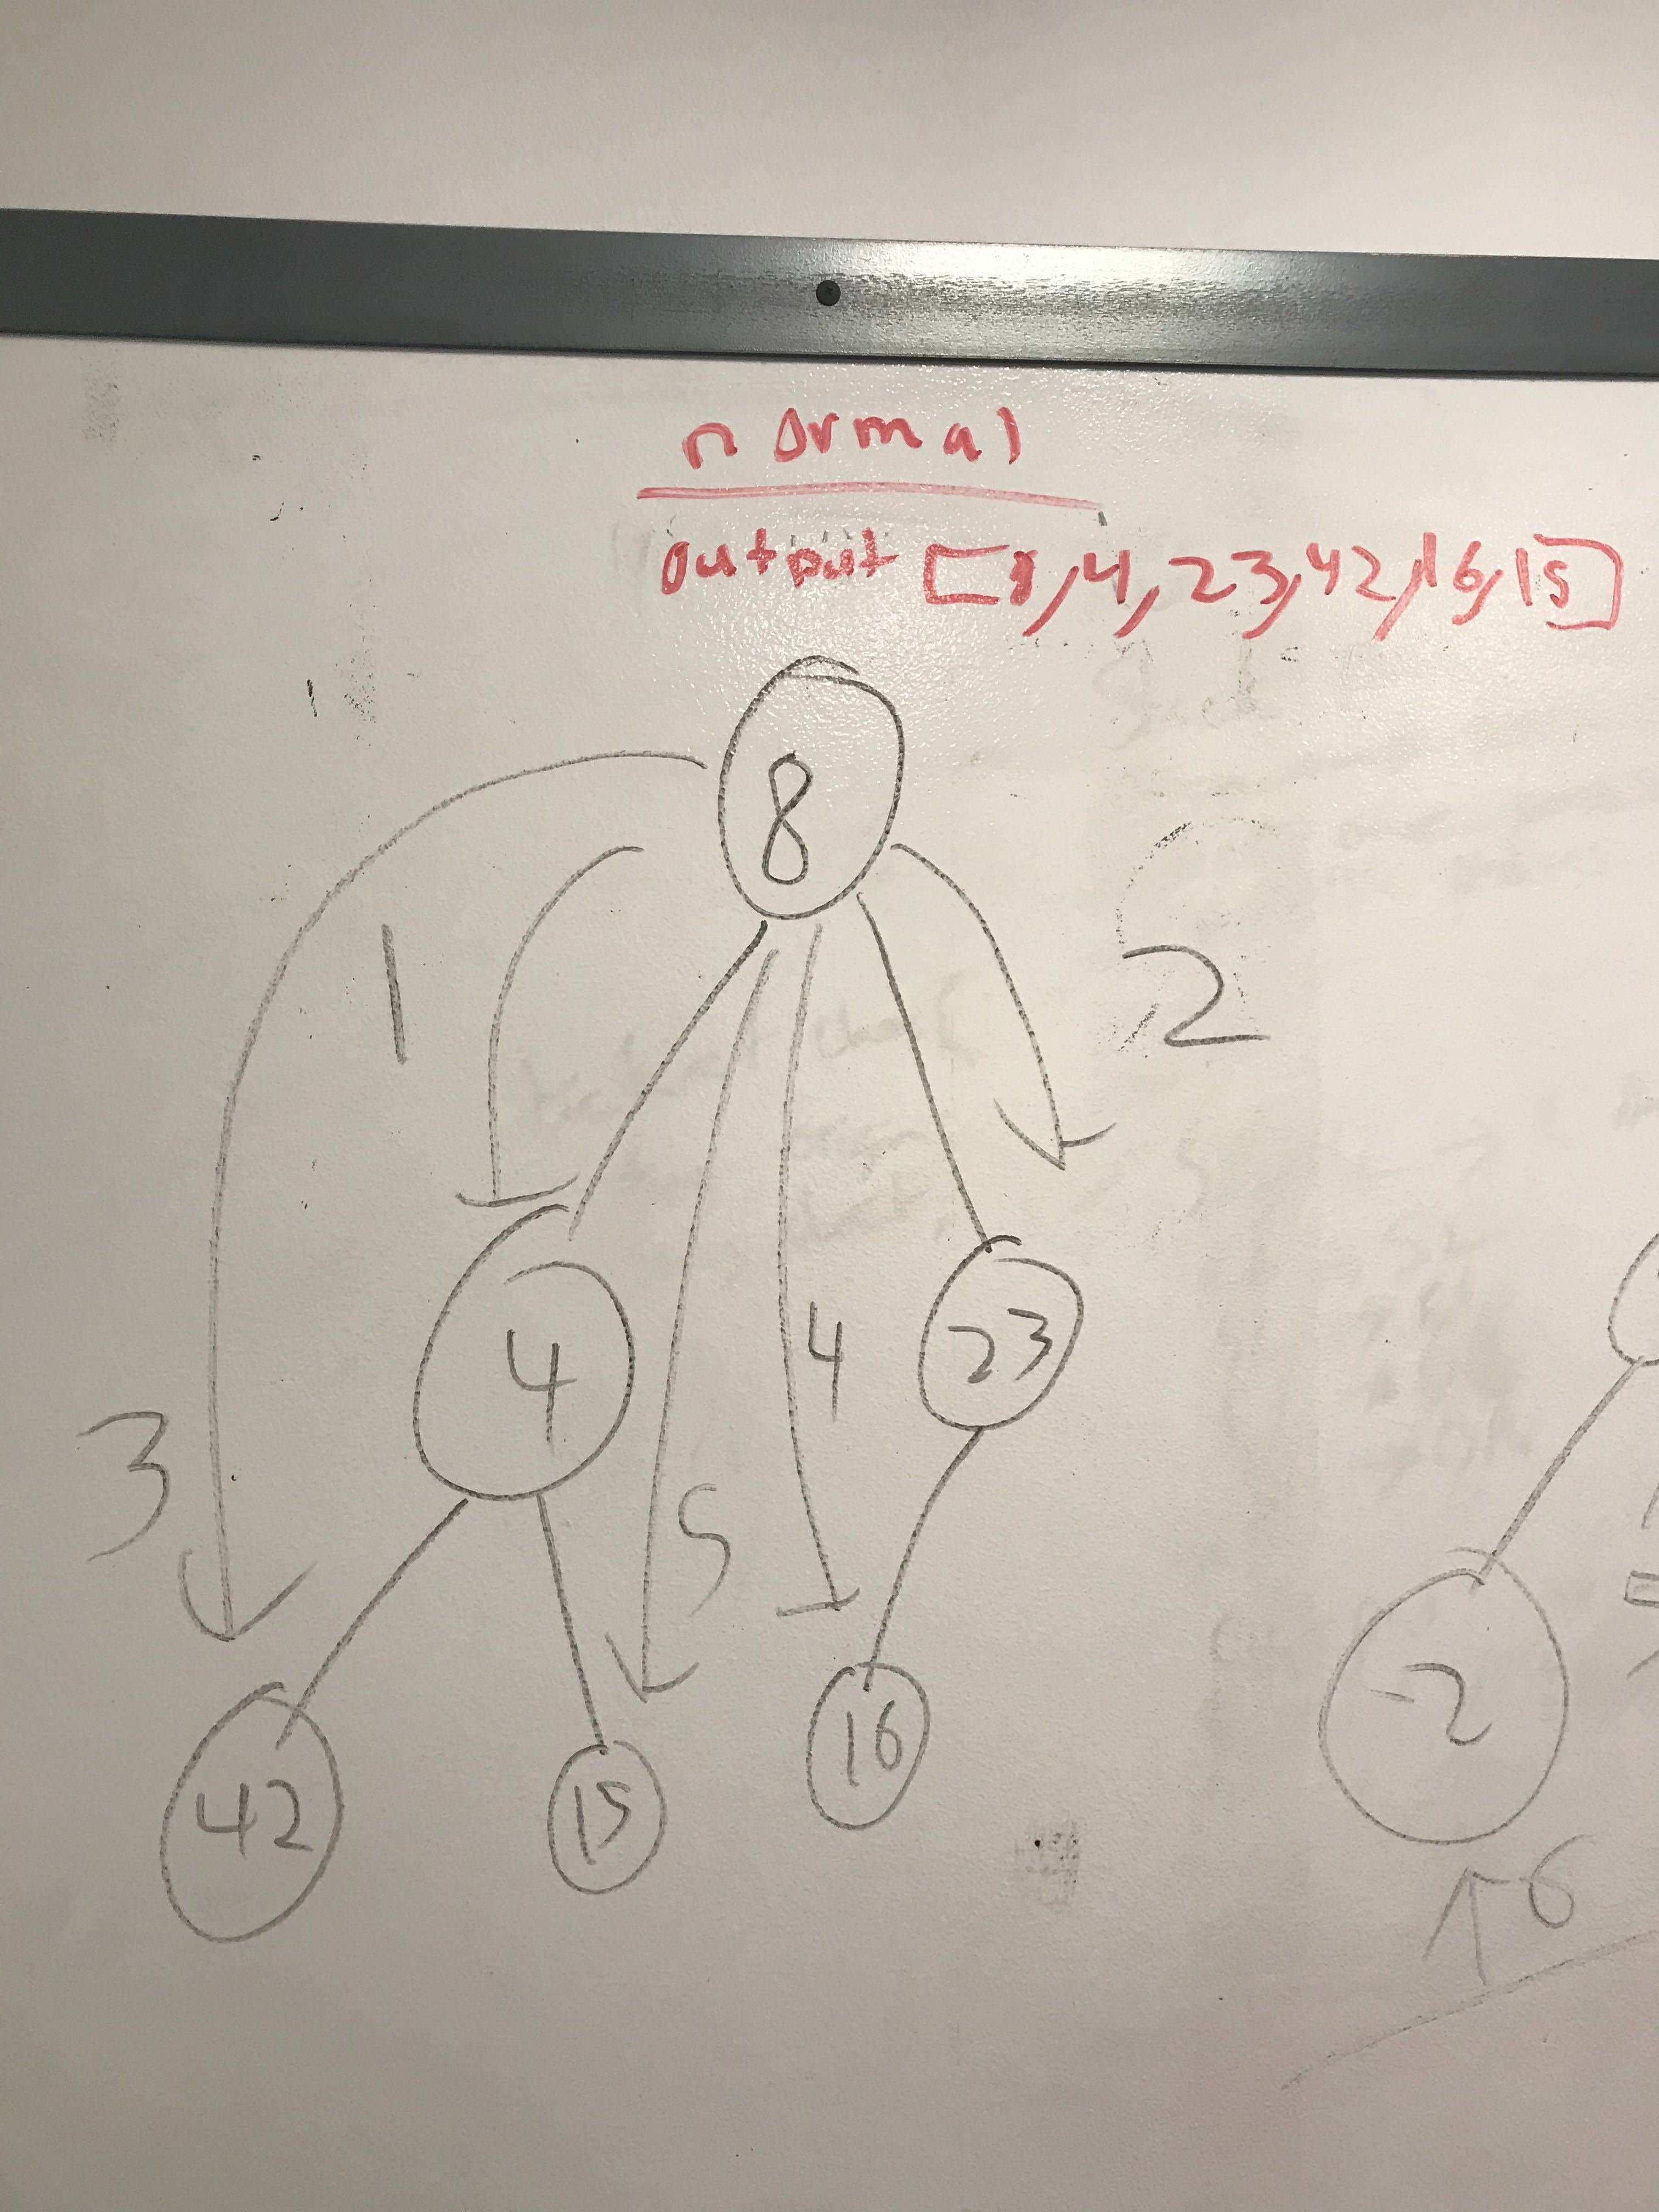 normal
output [8,4,23,42,16,15]
8
1
2
4
23
3
5
4
42
15
16
-2
6